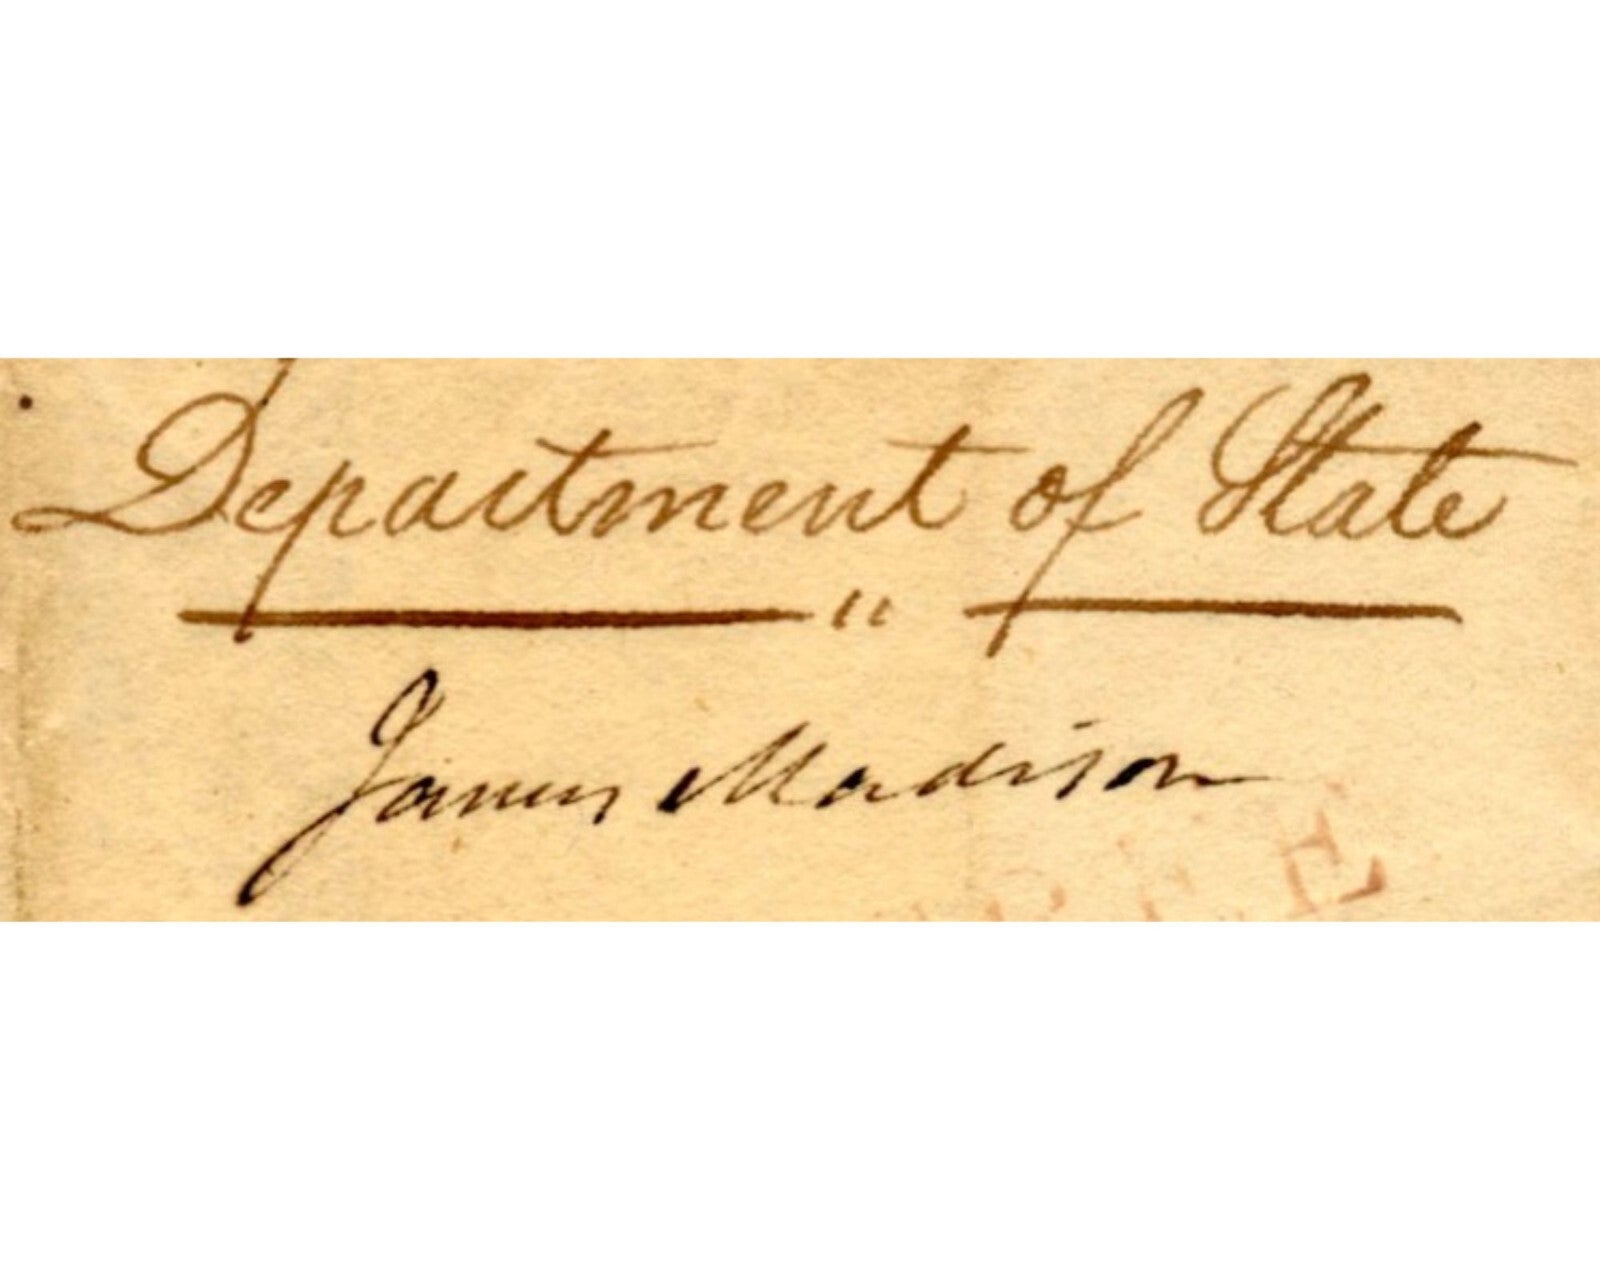 Department of State
"
James Madison